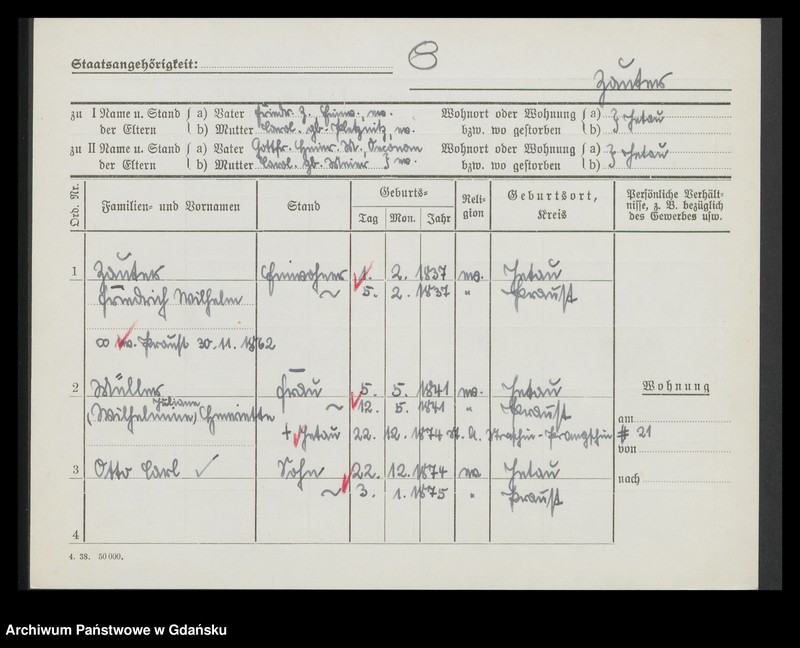 Staatsangehörigkeit:
Zauter
zu I Name u. Stand a) Vater Friedr. Z., Einw., ev. Wohnort oder Wohnung a) Jetau
der Eltern b) Mutter Carol. gb. ev. bzw. wo gestorben b)
zu II Name u. Stand a) Vater Gottfr. Heinr. M., Oeconom Wohnort oder Wohnung a) Jetau
der Eltern b) Mutter Carol. gb. Meier ev. bzw. wo gestorben b)
Ord. Nr. Familien- und Vornamen Stand Geburts- Tag Mon. Jahr Religion Geburtsort, Kreis Persönliche Verhältnisse, z. B. bezüglich des Gewerbes usw.
1 Zauter Einwohner 1. 2. 1837 ev. Jetau
Friedrich Wilhelm ~ 5. 2. 1837 " Praust
∞ ev. Praust 30. 11. 1862
2 Müller Frau 5. 5. 1841 ev. Jetau
Wohnung
Juliane
(Wilhelmine) Henriette ~ 12. 5. 1841 " Praust
am
+ Jetau 22. 12. 1874 St. A. Straschin-Prangschin # 21
von
3 Otto Carl ✓ Sohn 22. 12. 1874 ev Jetau
nach
~ 3. 1. 1875 " Praust
4
4. 38. 50 000.
Archiwum Państwowe w Gdańsku